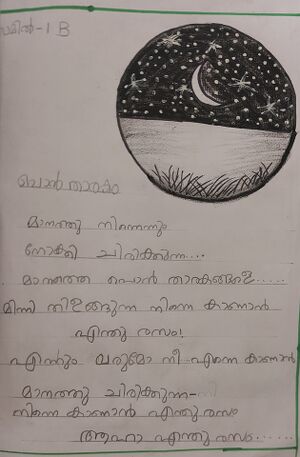 മിൽ-1 B
പൊൻ താരകം
മാനത്തു നിന്നെന്നും
നോക്കി ചിരിക്കുന്ന....
മാനത്തെ പൊൻ താരകങ്ങളെ.....
മിന്നി തിളങ്ങുന്ന നിന്നെ കാണാൻ
എന്തു രസം!
എന്നും വരുമോ നീ എന്നെ കാണാൻ
മാനത്തു ചിരിക്കുന്ന
നിന്നെ കാണാൻ എന്തു രസം
ആഹാ എന്തു രസം......